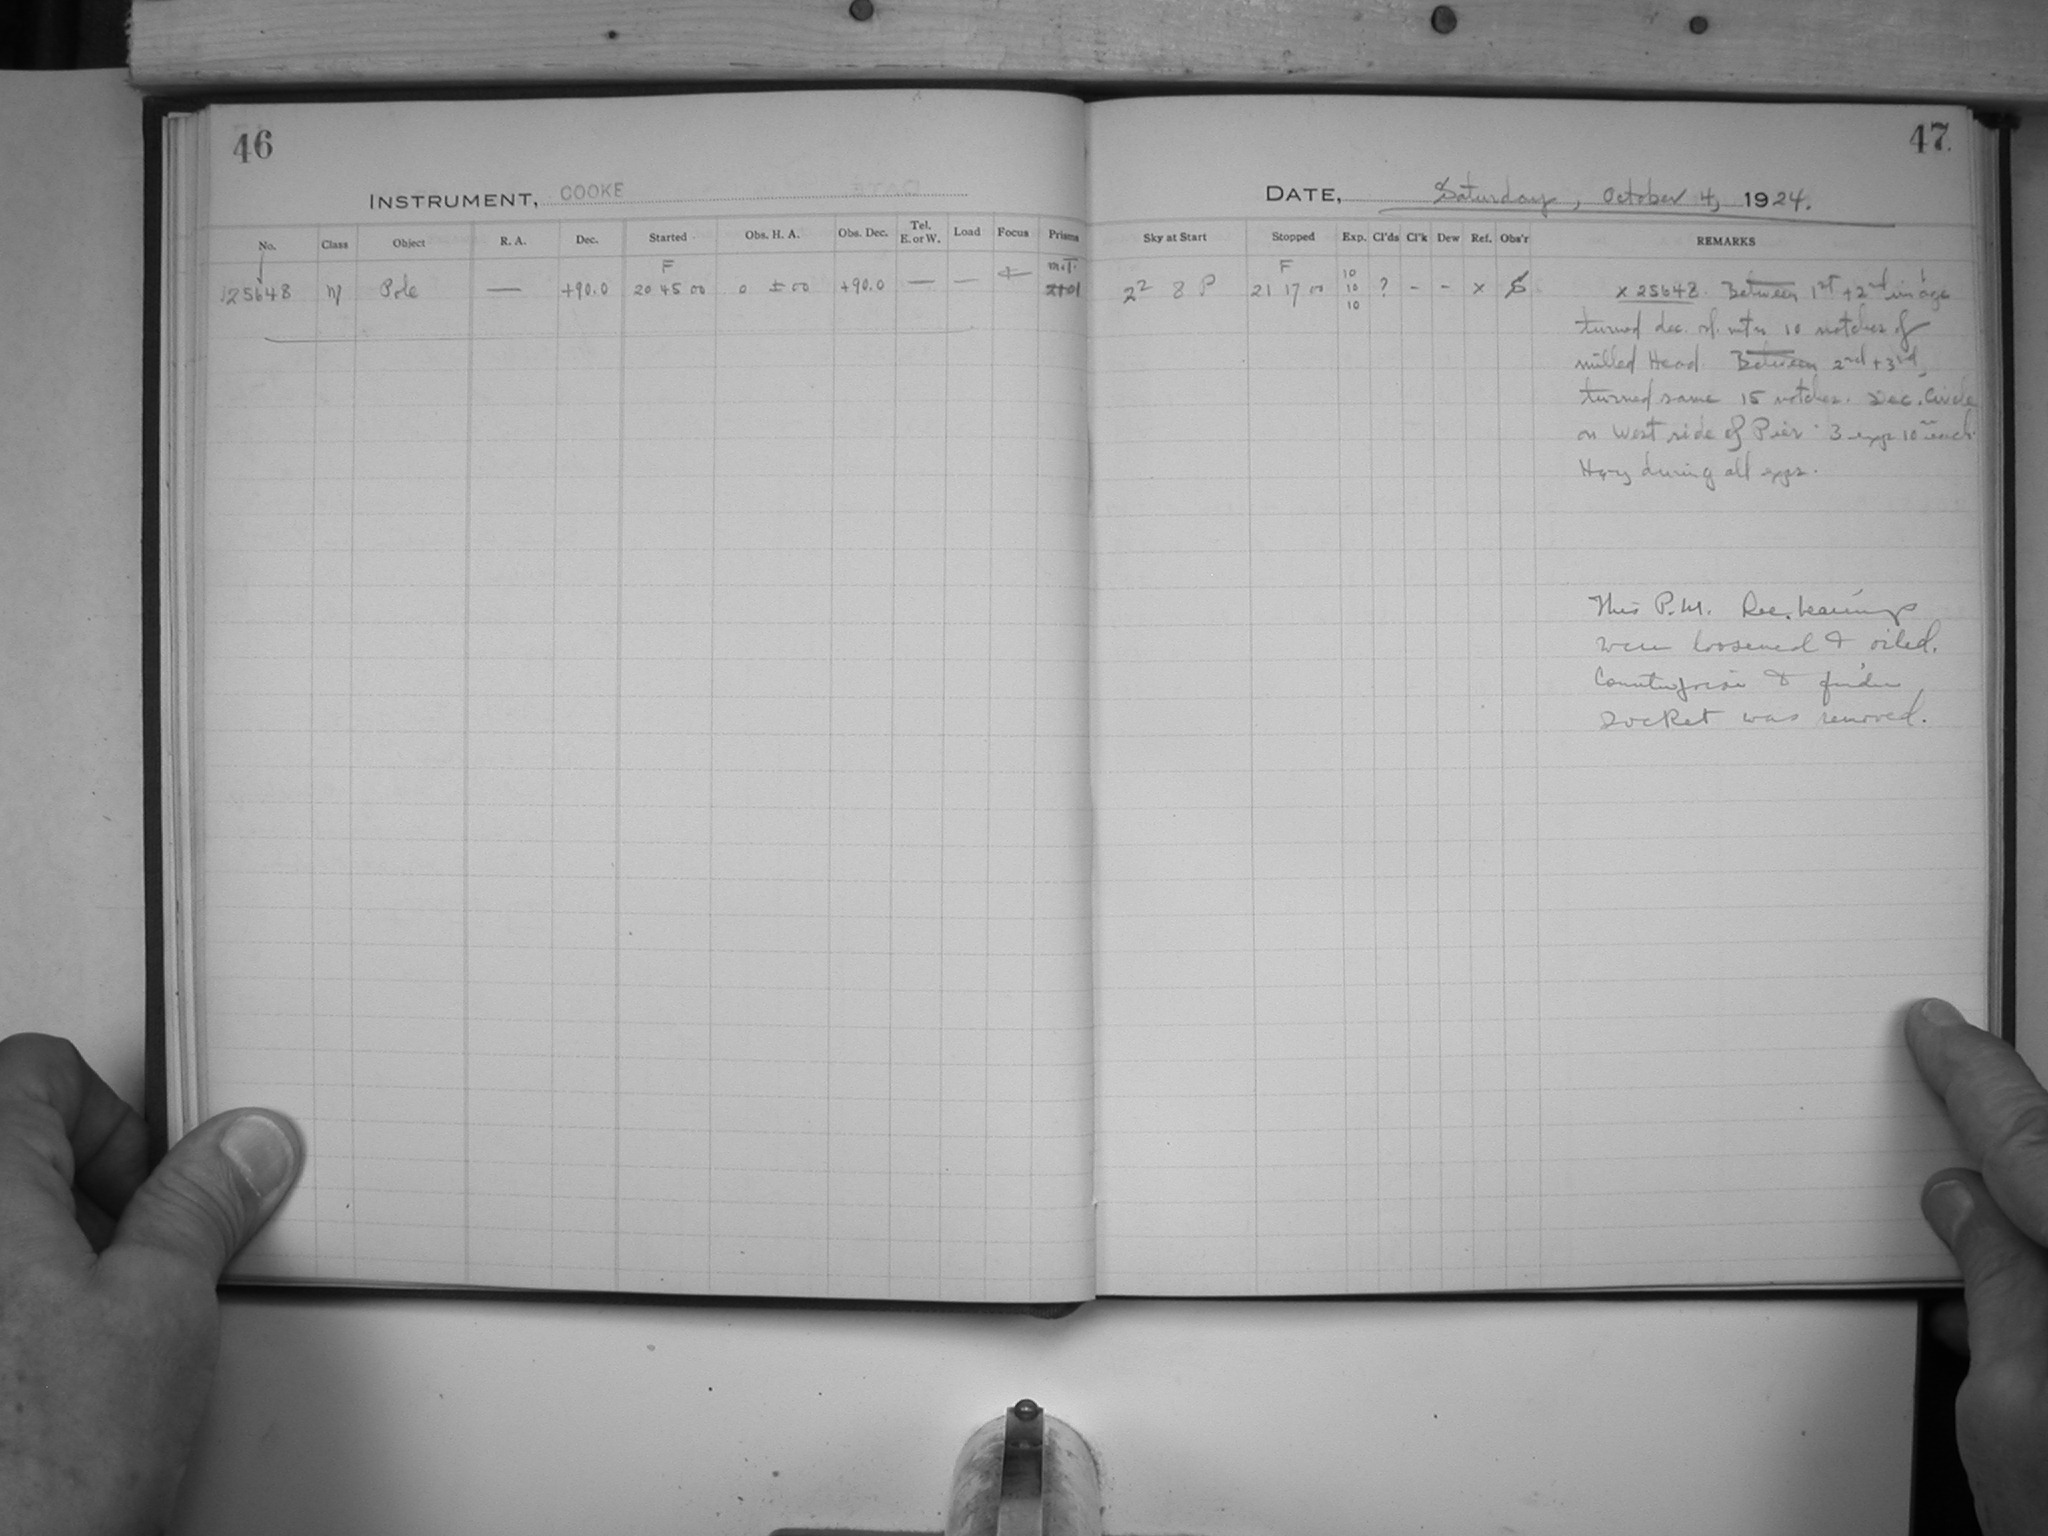 46
INSTRUMENT, COOKE
No. Class Object R. A. Dec. Started Obs. H. A. Obs. Dec. Tel. E. or W. Load Focus Prisms
F M.T.
25648 Pole — +90.0 20 45 00 0 ± 00 +90.0 — —
47
DATE, Saturday, October 4, 1924.
Sky at Start Stopped Exp. Cl'ds Cl'k Dew Ref. Obs'r REMARKS
F 10
22 8 P 21 17 00 10 ? - - x x 25648. Between 1st + 2nd image
10
turned dec. 10 notches of
milled Head. Between 2nd + 3rd,
turned same 15 notches. Dec. Circle
on West side of Pier. 3 exps 10m each
Hazy during all exps.
This P.M. bearings
were loosened & oiled.
Counterpoise & finder
socket was removed.